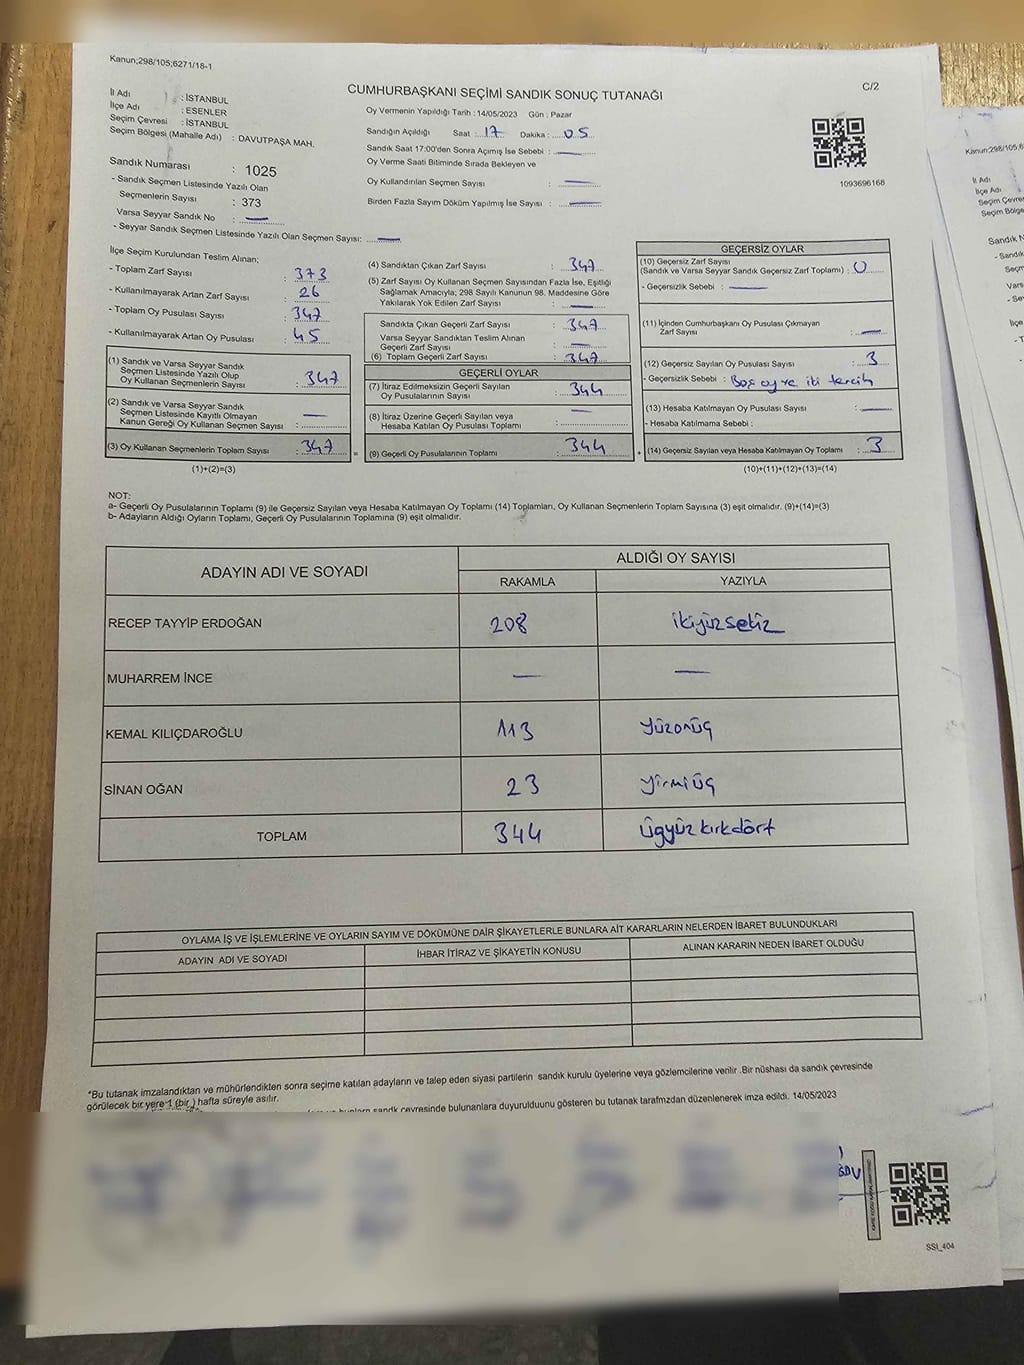 Kanun;298/105;6271/18-1
CUMHURBAŞKANI SEÇİMİ SANDIK SONUÇ TUTANAĞI
C/2
İl Adı : İSTANBUL
İlçe Adı : ESENLER
Seçim Çevresi : İSTANBUL
Seçim Bölgesi (Mahalle Adı) : DAVUTPAŞA MAH.
Sandık Numarası : 1025
- Sandık Seçmen Listesinde Yazılı Olan
Seçmenlerin Sayısı : 373
Varsa Seyyar Sandık No : —
- Seyyar Sandık Seçmen Listesinde Yazılı Olan Seçmen Sayısı: —
Oy Vermenin Yapıldığı Tarih : 14/05/2023 Gün : Pazar
Sandığın Açıldığı Saat : 17 Dakika : 05
Sandık Saat 17:00'den Sonra Açımış İse Sebebi : —
Oy Verme Saati Bitiminde Sırada Bekleyen ve
Oy Kullandırılan Seçmen Sayısı : —
Birden Fazla Sayım Döküm Yapılmış İse Sayısı : —
1093696168
İlçe Seçim Kurulundan Teslim Alınan;
- Toplam Zarf Sayısı : 373
- Kullanılmayarak Artan Zarf Sayısı : 26
- Toplam Oy Pusulası Sayısı : 347
- Kullanılmayarak Artan Oy Pusulası : 45
(1) Sandık ve Varsa Seyyar Sandık
Seçmen Listesinde Yazılı Olup
Oy Kullanan Seçmenlerin Sayısı : 347
(2) Sandık ve Varsa Seyyar Sandık
Seçmen Listesinde Kayıtlı Olmayan
Kanun Gereği Oy Kullanan Seçmen Sayısı : —
(3) Oy Kullanan Seçmenlerin Toplam Sayısı : 347
(1)+(2)=(3)
(4) Sandıktan Çıkan Zarf Sayısı : 347
(5) Zarf Sayısı Oy Kullanan Seçmen Sayısından Fazla İse, Eşitliği
Sağlamak Amacıyla; 298 Sayılı Kanunun 98. Maddesine Göre
Yakılarak Yok Edilen Zarf Sayısı : —
Sandıkta Çıkan Geçerli Zarf Sayısı : 347
Varsa Seyyar Sandıktan Teslim Alınan
Geçerli Zarf Sayısı : —
(6) Toplam Geçerli Zarf Sayısı : 347
GEÇERLİ OYLAR
(7) İtiraz Edilmeksizin Geçerli Sayılan
Oy Pusulalarının Sayısı : 344
(8) İtiraz Üzerine Geçerli Sayılan veya
Hesaba Katılan Oy Pusulası Toplamı : —
(9) Geçerli Oy Pusulalarının Toplamı : 344
GEÇERSİZ OYLAR
(10) Geçersiz Zarf Sayısı
(Sandık ve Varsa Seyyar Sandık Geçersiz Zarf Toplamı) : 0
- Geçersizlik Sebebi : —
(11) İçinden Cumhurbaşkanı Oy Pusulası Çıkmayan
Zarf Sayısı : —
(12) Geçersiz Sayılan Oy Pusulası Sayısı : 3
- Geçersizlik Sebebi : Boş oy ve iki tercih
(13) Hesaba Katılmayan Oy Pusulası Sayısı : —
- Hesaba Katılmama Sebebi :
(14) Geçersiz Sayılan veya Hesaba Katılmayan Oy Toplamı : 3
(10)+(11)+(12)+(13)=(14)
NOT:
a- Geçerli Oy Pusulalarının Toplamı (9) ile Geçersiz Sayılan veya Hesaba Katılmayan Oy Toplamı (14) Toplamları, Oy Kullanan Seçmenlerin Toplam Sayısına (3) eşit olmalıdır. (9)+(14)=(3)
b- Adayların Aldığı Oyların Toplamı, Geçerli Oy Pusulalarının Toplamına (9) eşit olmalıdır.
ADAYIN ADI VE SOYADI ALDIĞI OY SAYISI
RAKAMLA YAZIYLA
RECEP TAYYİP ERDOĞAN 208 ikiyüzsekiz
MUHARREM İNCE — —
KEMAL KILIÇDAROĞLU 113 yüzonüç
SİNAN OĞAN 23 yirmiüç
TOPLAM 344 üçyüzkırkdört
OYLAMA İŞ VE İŞLEMLERİNE VE OYLARIN SAYIM VE DÖKÜMÜNE DAİR ŞİKAYETLERLE BUNLARA AİT KARARLARIN NELERDEN İBARET BULUNDUKLARI
ADAYIN ADI VE SOYADI İHBAR İTİRAZ VE ŞİKAYETİN KONUSU ALINAN KARARIN NEDEN İBARET OLDUĞU
*Bu tutanak imzalandıktan ve mühürlendikten sonra seçime katılan adayların ve talep eden siyasi partilerin sandık kurulu üyelerine veya gözlemcilerine verilir .Bir nüshası da sandık çevresinde
görülecek bir yere 1 (bir ) hafta süreyle asılır.
sandık çevresinde bulunanlara duyurulduunu gösteren bu tutanak tarafmzdan düzenlenerek imza edildi. 14/05/2023
SSI_404
Kanun;298/105;6
İl Adı
İlçe Adı
Seçim Çevre
Seçim Bölge
Sandık N
- Sandık
Seçm
Vars
- Se
İlçe